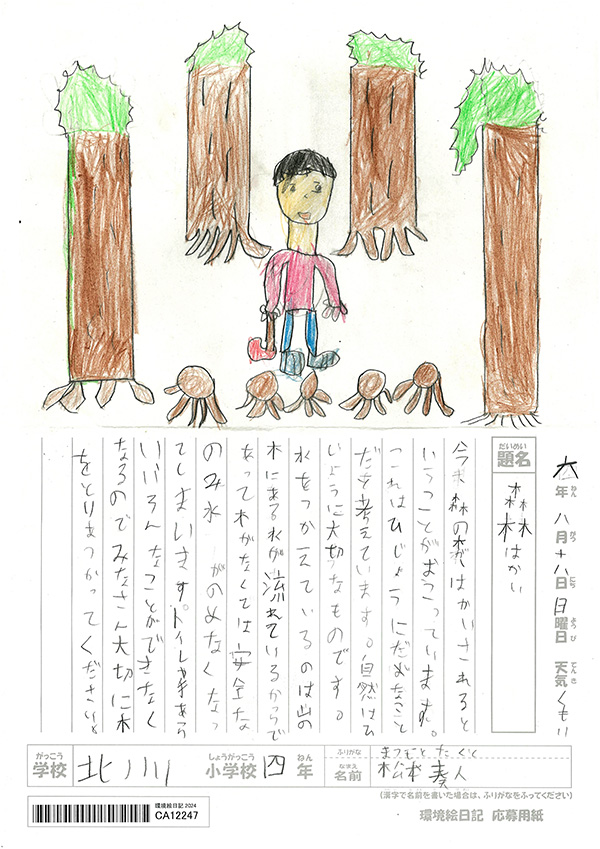 六年八月十八日日曜日 天気 くもり
ねん がつ にち ようび てんき
だいめい
題名 森林はかい
今 森の木が はかいされると
いうことがおこっています。
これはひじょうにだめなこと
だと考えています。自然はひ
じょうに大切なものです。
水をつかえているのは山の
木にある水が流れているからで
あって木がなくては安全な
のみ水 がのめなくなっ
てしまいます。トイレや手あら
いいろんなことができなく
なるのでみなさん大切に木
をとりあつかってください。
がっこう しょうがっこう ねん ふりがな まつもと
学校 北川 小学校 四年 なまえ 名前 松本 奏人
(漢字で名前を書いた場合は、ふりがなをふってください)
環境絵日記 2024
CA12247
環境絵日記 応募用紙